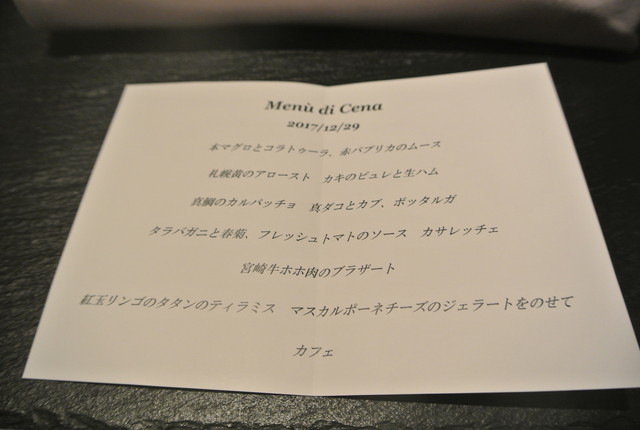 Menù di Cena
2017/12/29
本マグロとコラトゥーラ、赤パプリカのムース
札幌黄のアロースト カキのピュレと生ハム
真鯛のカルパッチョ 真ダコとカブ、ボッタルガ
タラバガニと春菊、フレッシュトマトのソース カサレッチェ
宮崎牛ホホ肉のブラザート
紅玉リンゴのタタンのティラミス マスカルポーネチーズのジェラートをのせて
カフェ